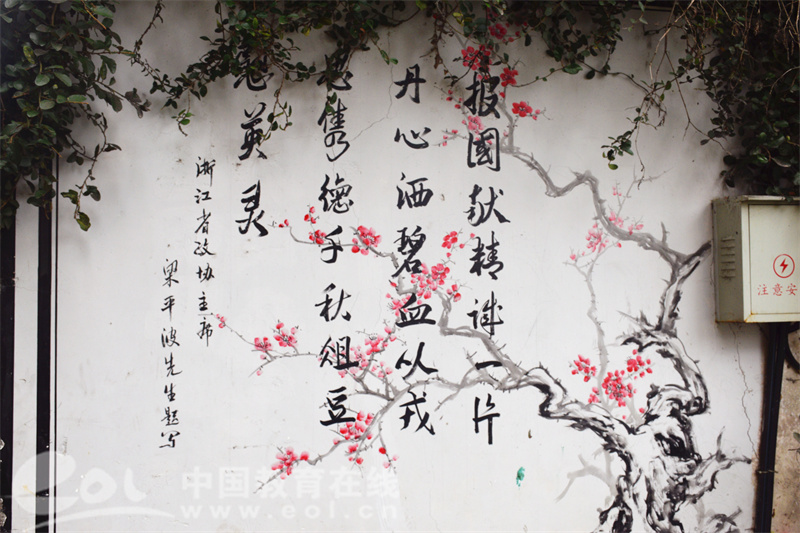 报国献精诚一片
丹心洒碧血从戎
隽德千秋俎豆
英灵
浙江省政协主席
梁平波先生题写
注意安
eol 中国教育在线
www.eol.cn